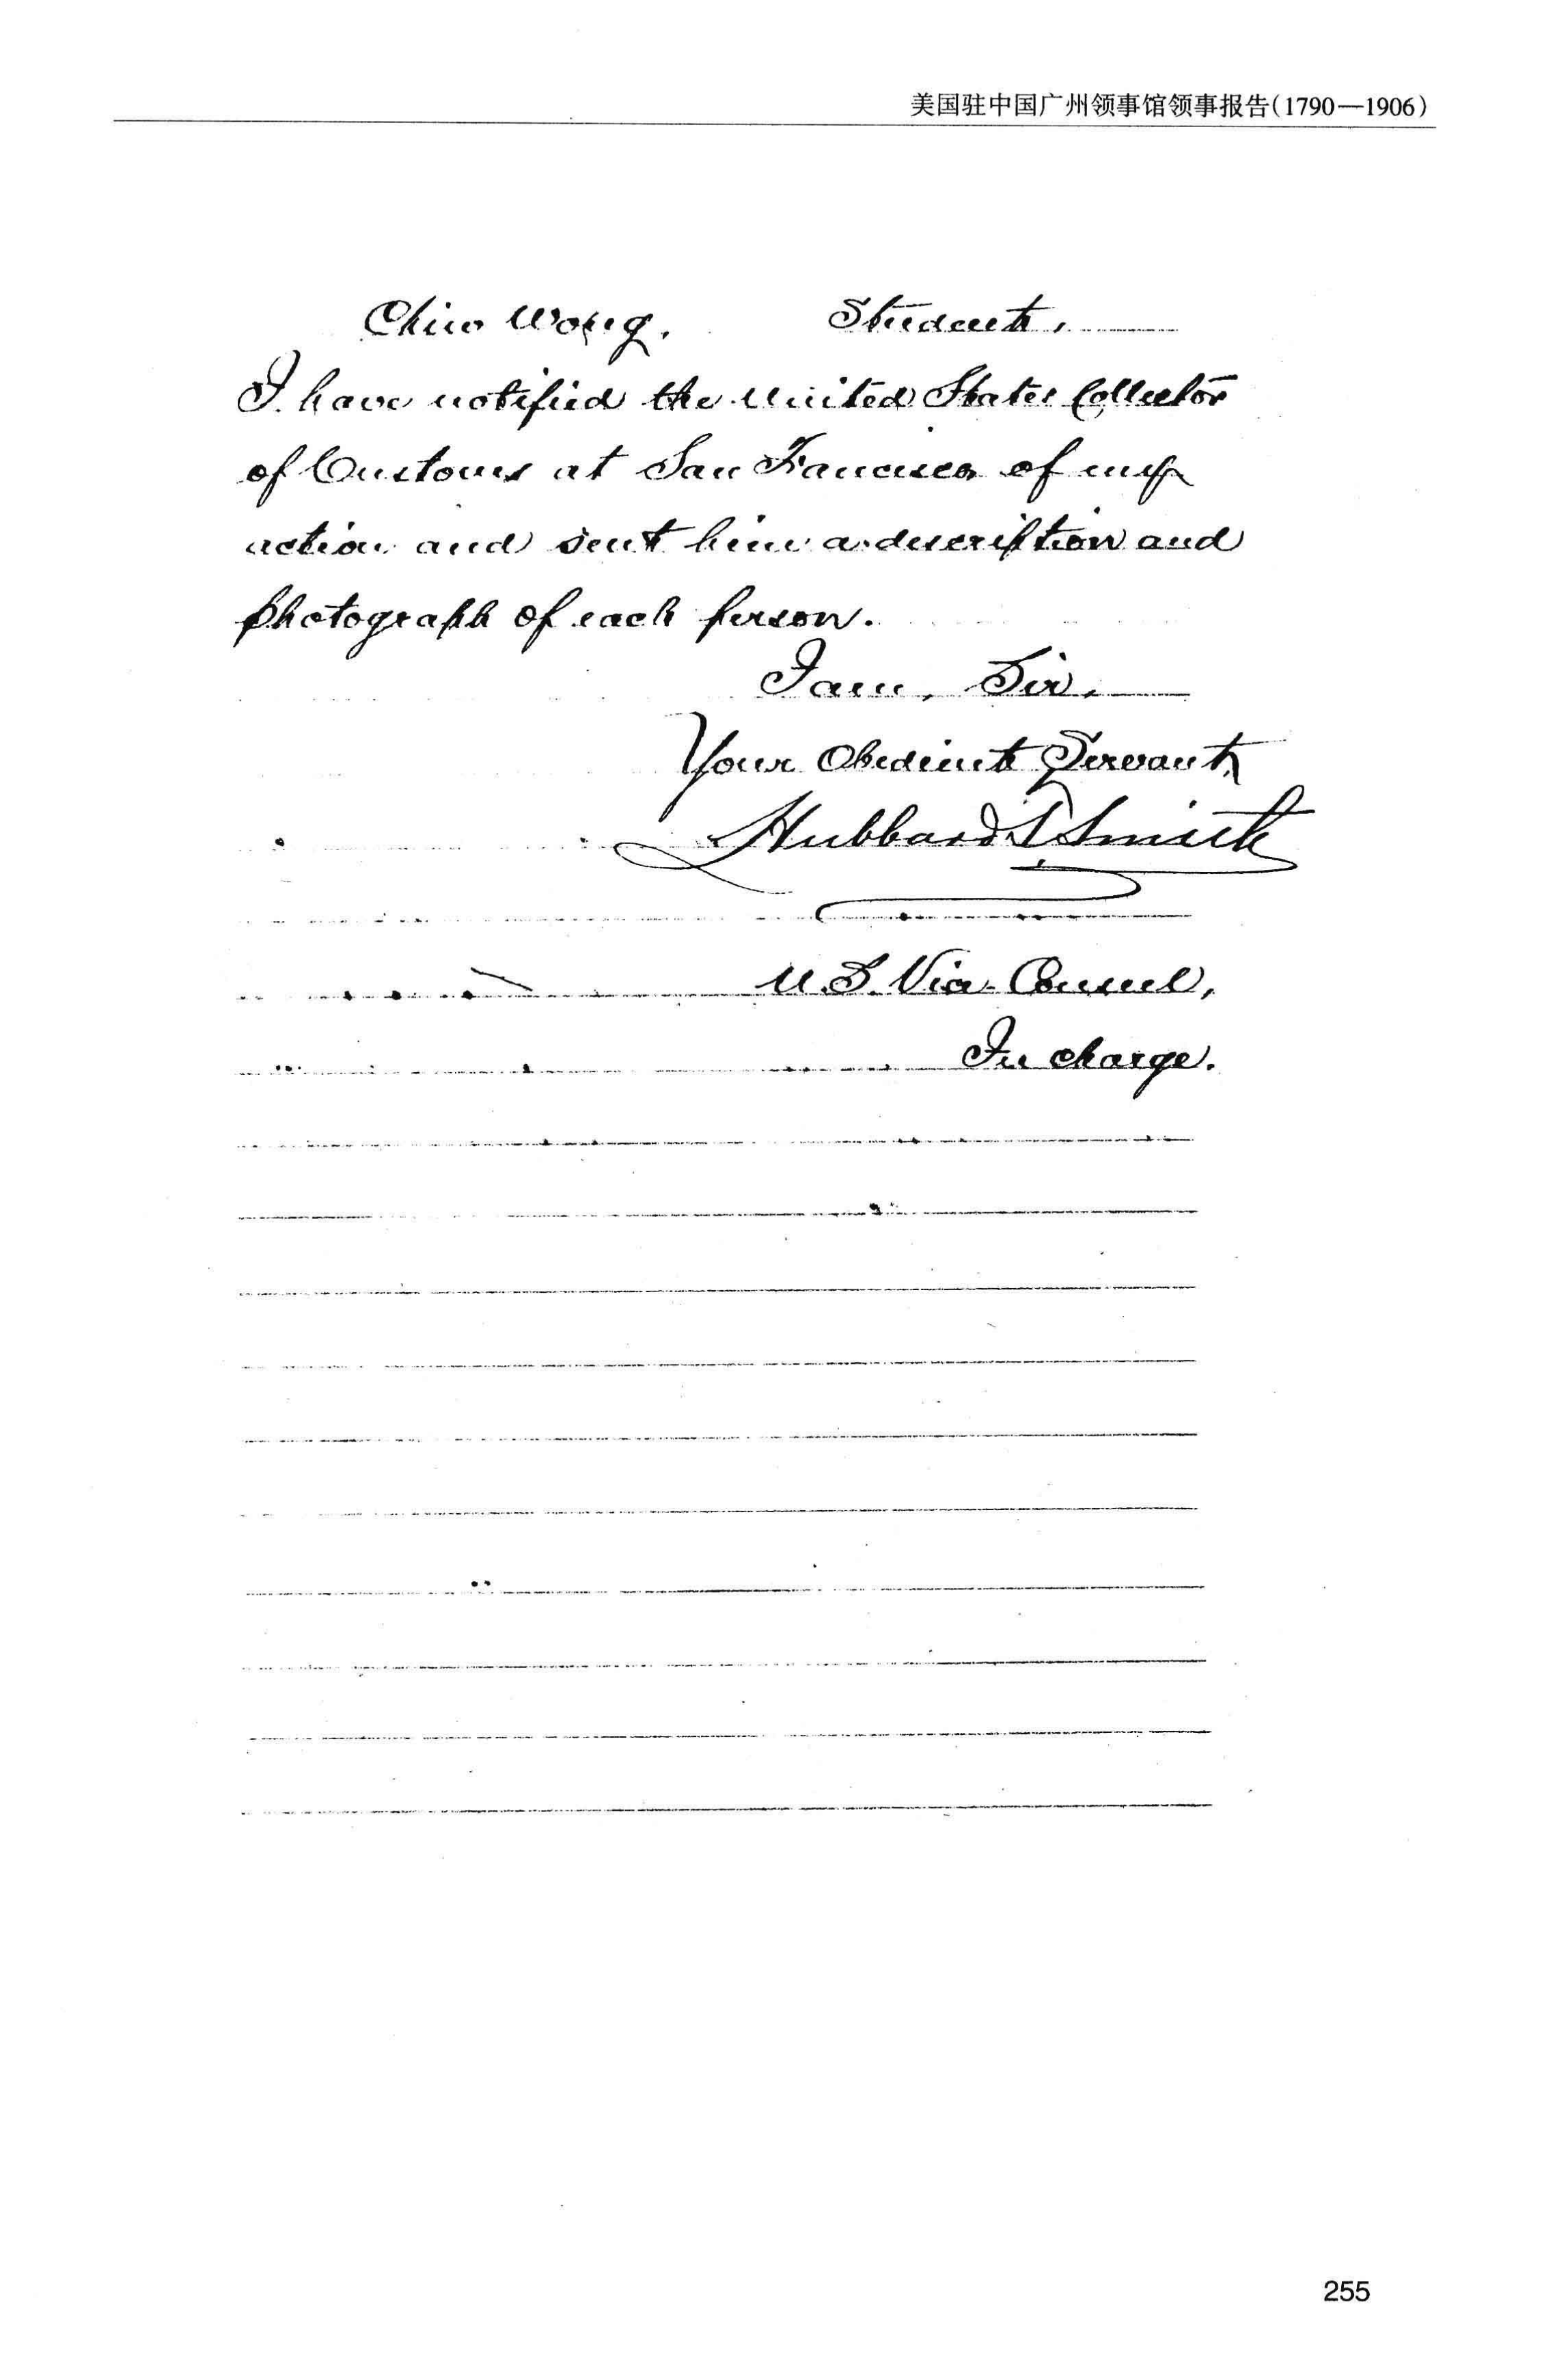 美国驻中国广州领事馆领事报告(1790—1906)
Wong. Student,
I have notified the United States Collector
of Customs at San Francisco of my
action and sent him a description and
photograph of each person.
I am, Sir,
Your Obedient Servant,
Hubbard T Smith
U.S. Vice-Consul,
In charge.
255